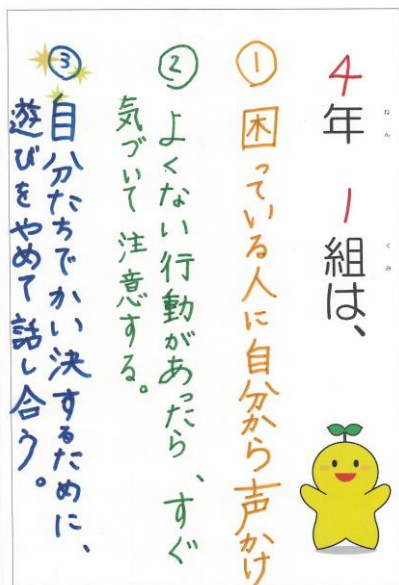 4年1組は、
ねん
くみ
① 困っている人に自分から声かけ
② よくない行動があったら、すぐ
気づいて注意する。
③ 自分たちでかい決するために、
遊びをやめて話し合う。